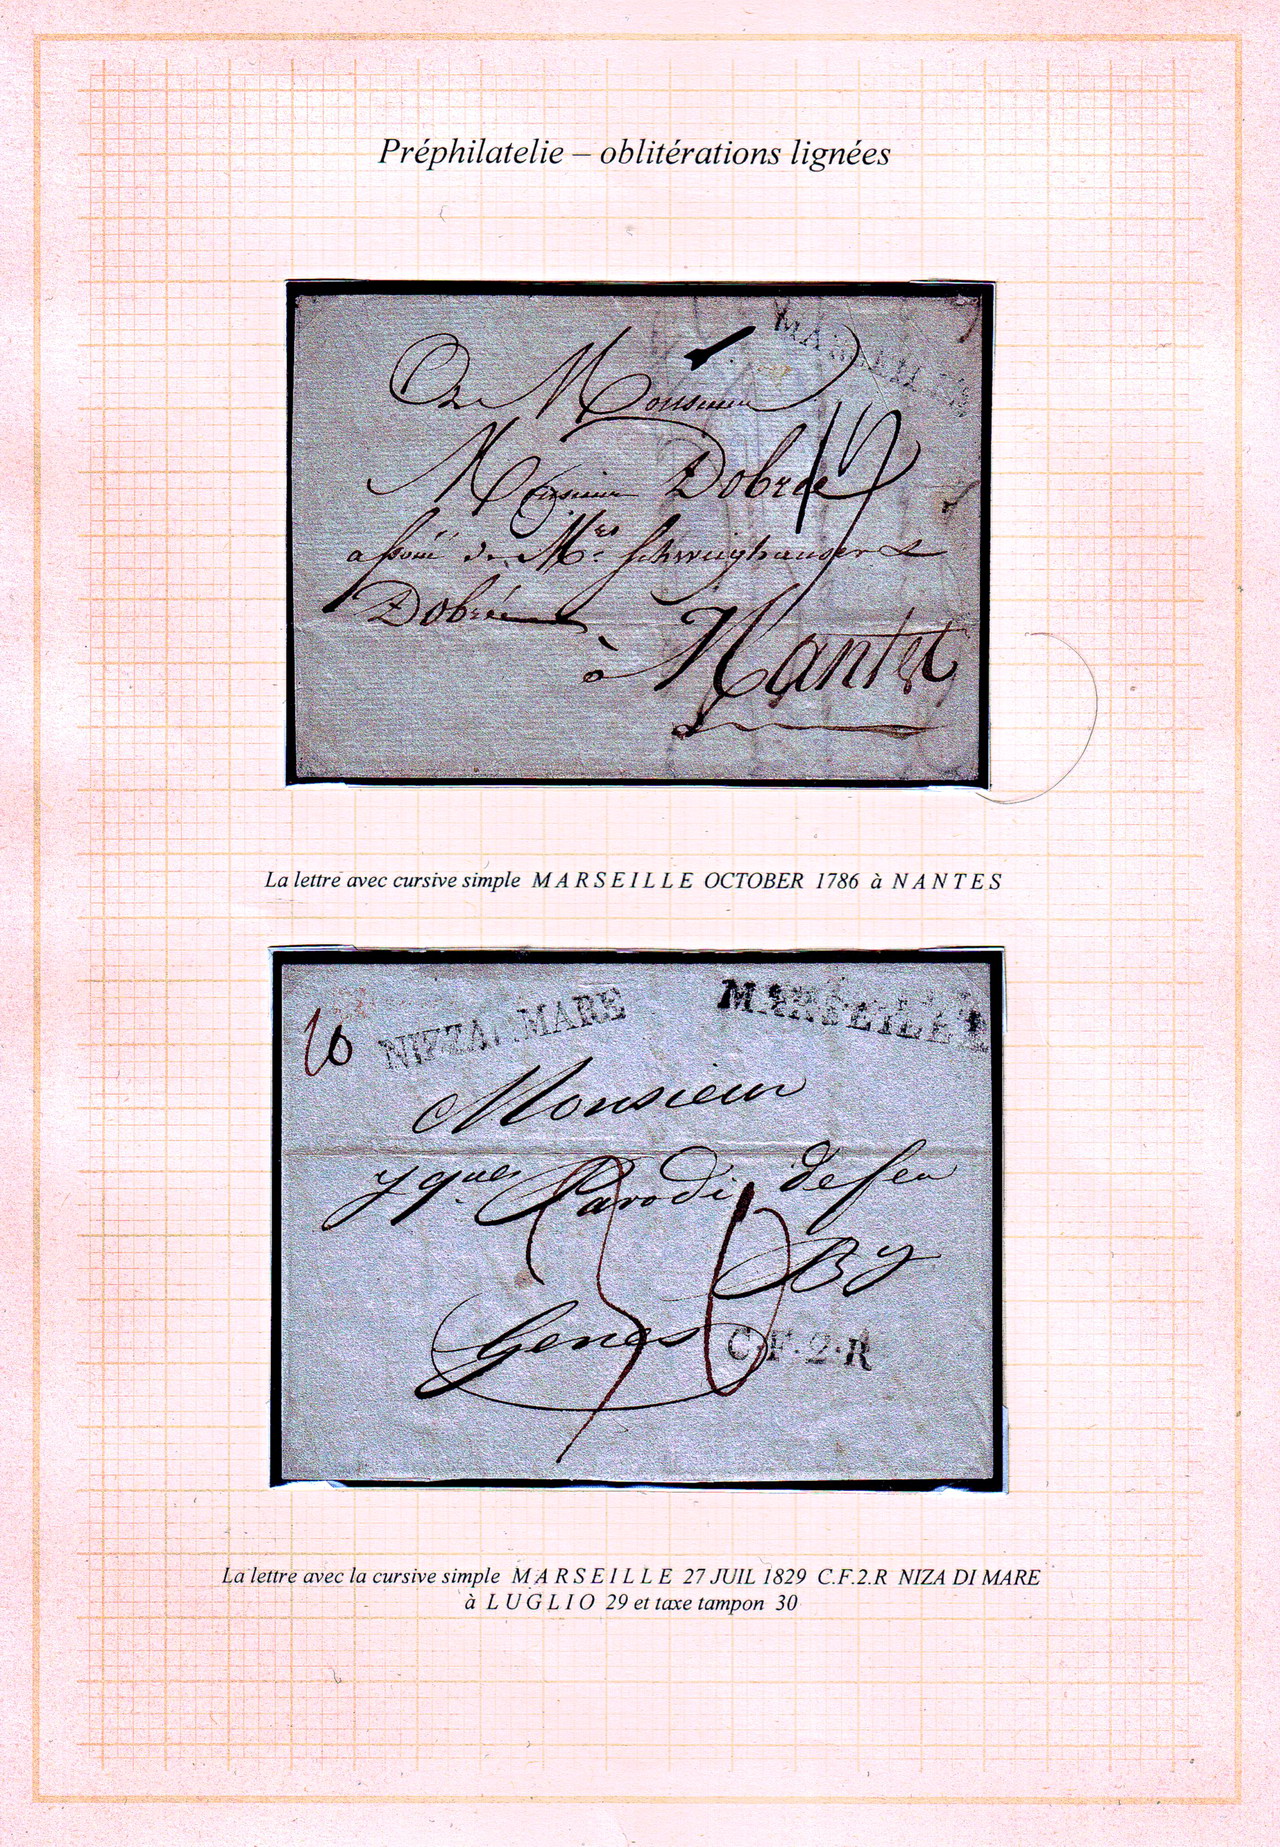 Préphilatelie – oblitérations lignées
MARSEILLE
A Monsieur
Monsieur Dobrée
associé de Mrs. Schweighauser &
Dobrée
à Nantes
La lettre avec cursive simple MARSEILLE OCTOBER 1786 à NANTES
NIZZA MARE
MARSEILLE
Monsieur
Jques Parodi de feu
By
Genes
C.F.2.R
30
La lettre avec la cursive simple MARSEILLE 27 JUIL 1829 C.F.2.R NIZA DI MARE
à LUGLIO 29 et taxe tampon 30